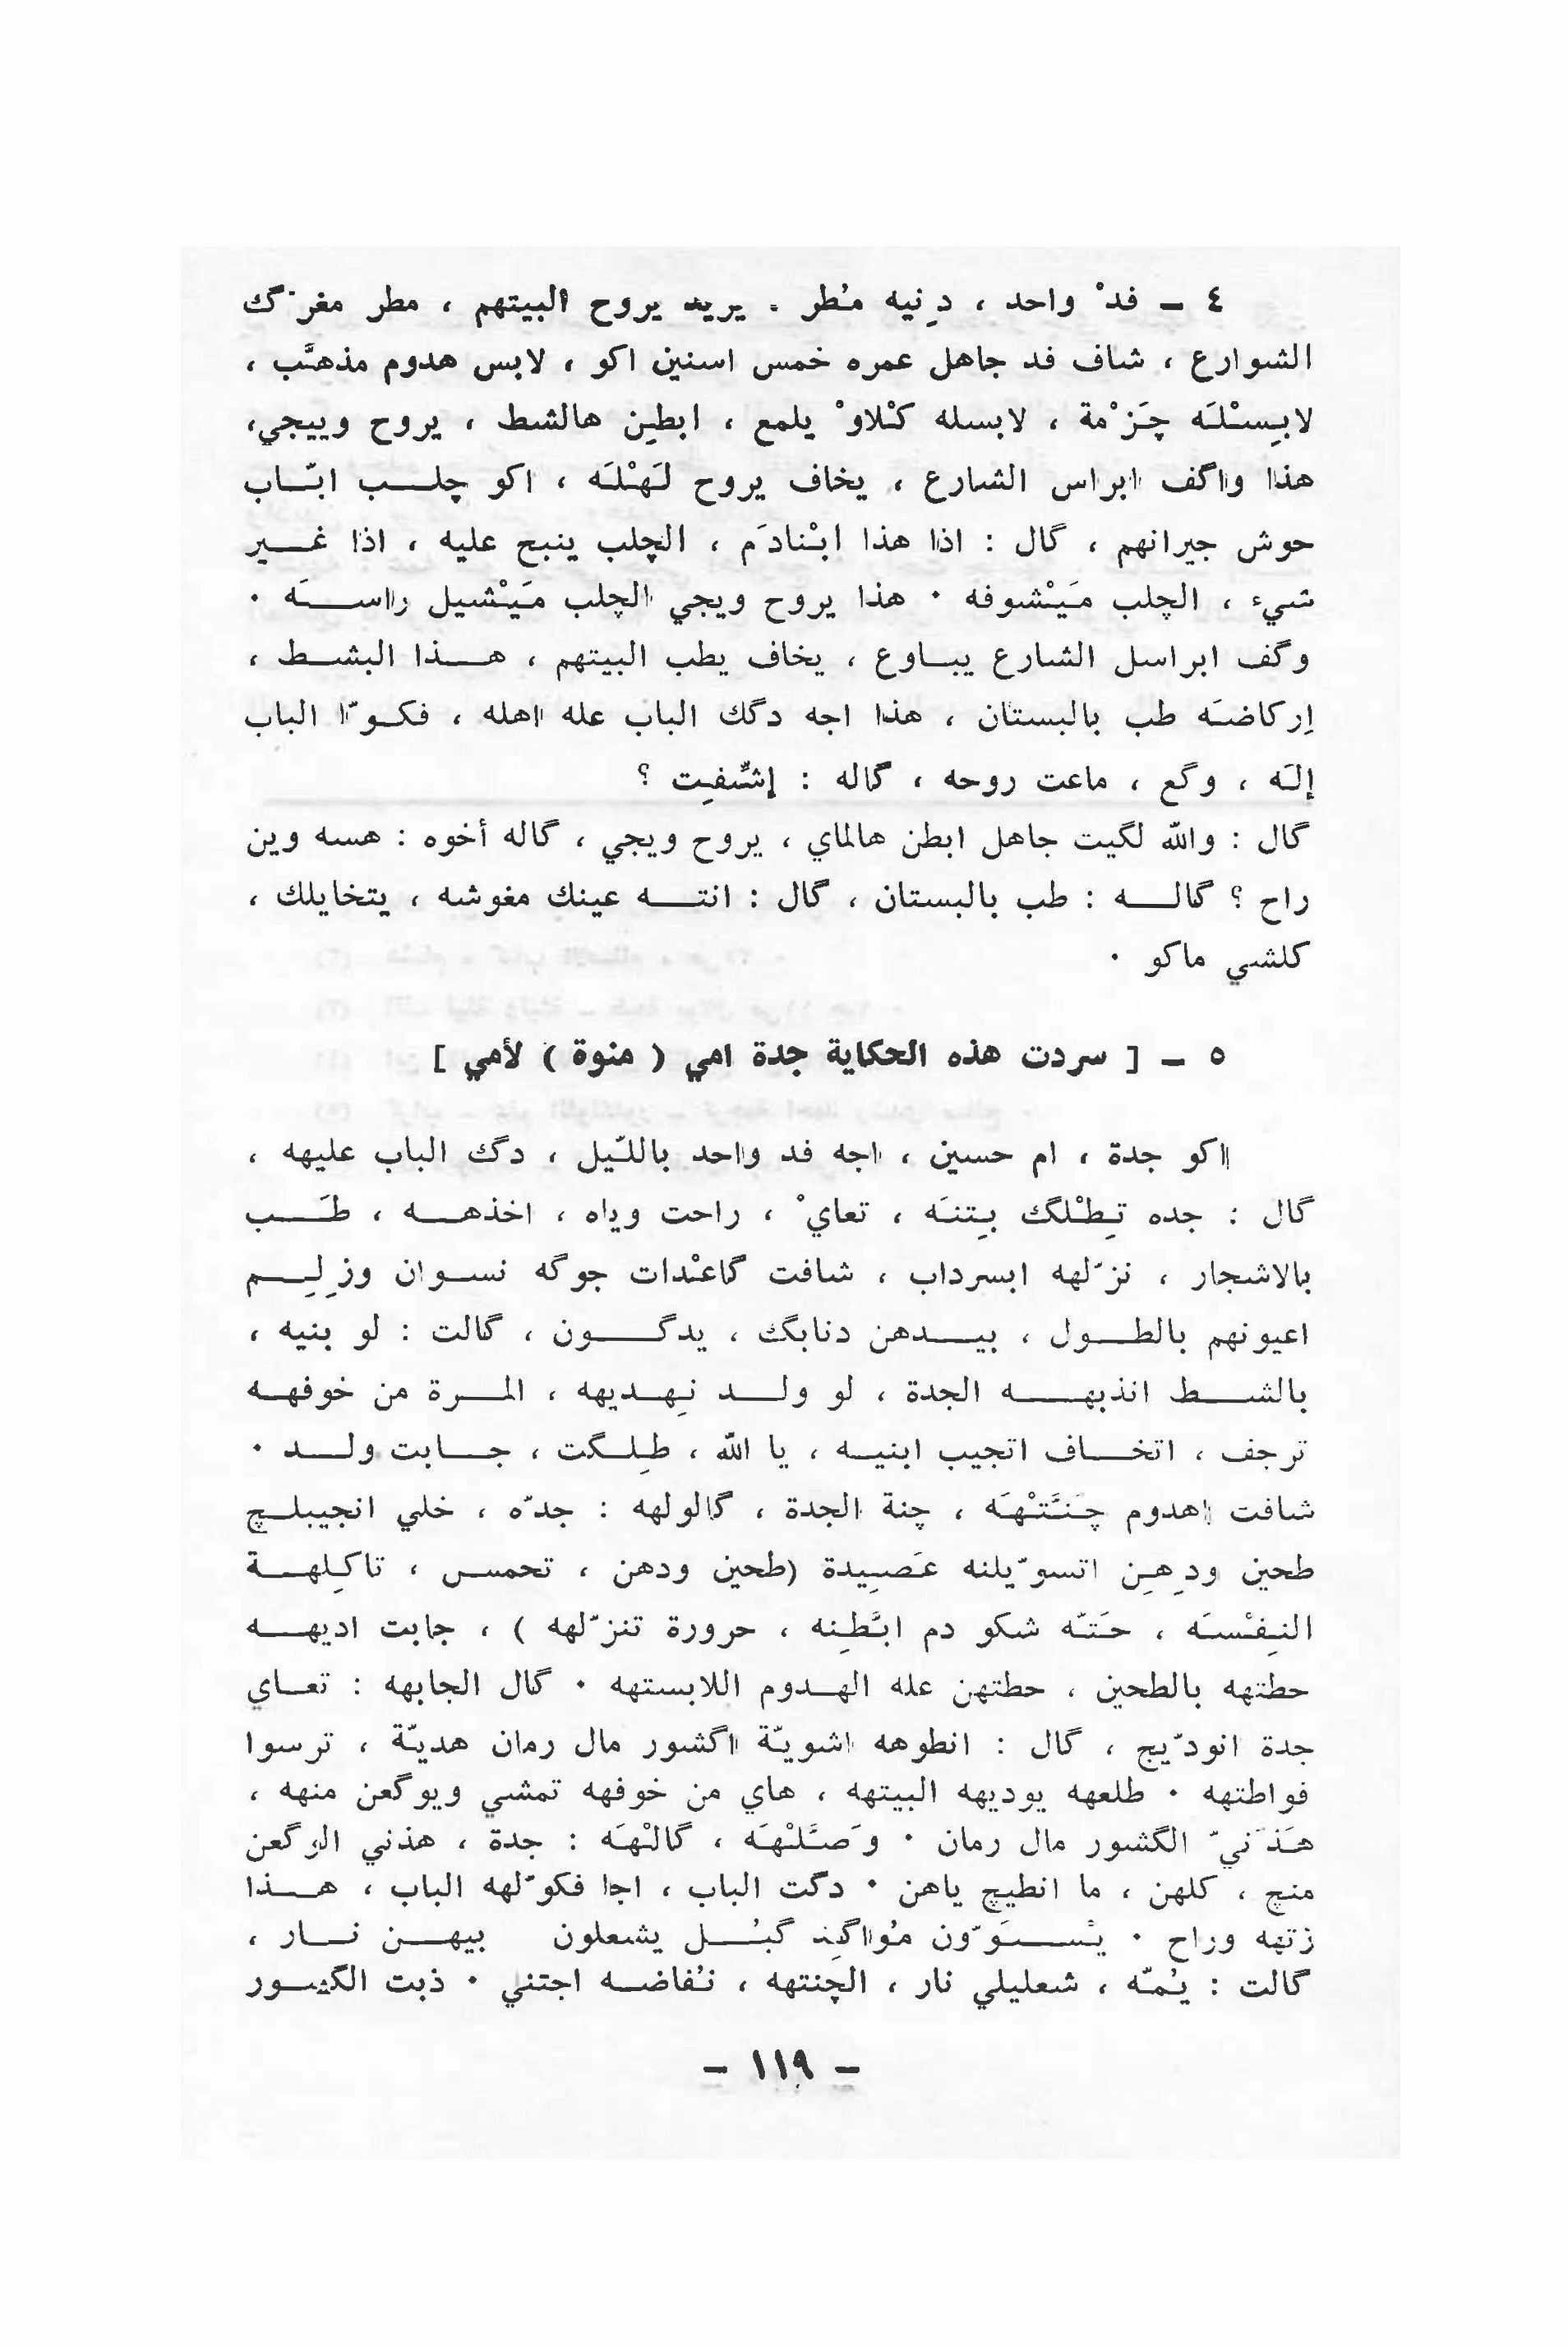 ٤ ــ فدْ واحد ، دِنيه مُطر . يريد يروح البيتهم ، مطر مغرَّگ
الشوارع ، شاف فد جاهل عمره خمس اسنين اكو ، لابس هدوم مذهَّب ،
لابِسْلَه چَزْمة ، لابسله كْلاوْ يلمع ، ابطِن هالشط ، يروح وييجي،
هذا واگف ابراس الشارع ، يخاف يروح لَهْلَه ، اكو چلب ابّاب
حوش جيرانهم ، گال : اذا هذا ابْنادَم ، الچلب ينبح عليه ، اذا غير
شيء ، الچلب مَيْشوفه ٠ هذا يروح ويجي الچلب مَيْشيل راسَه ٠
وگف ابراسل الشارع يباوع ، يخاف يطب البيتهم ، هذا البشط ،
اِركاضَه طب بالبستان ، هذا اجه دگك الباب عله اهله ، فكوّا الباب
إلَه ، وگع ، ماعت روحه ، گاله : إشّفِت ؟
گال : والله لگيت جاهل ابطن هالماي ، يروح ويجي ، گاله أخوه : هسه وين
راح ؟ گاله : طب بالبستان ، گال : انته عينك مغوشه ، يتخايلك ،
كلشي ماكو ٠
٥ ــ [ سردت هذه الحكاية جدة امي ( منوة ) لأمي ]
اكو جدة ، ام حسين ، اجه فد واحد باللّيل ، دگك الباب عليهه ،
گال : جده تِطْلگ بِتنَه ، تعايْ ، راحت وياه ، اخذهه ، طَب
بالاشجار ، نزَّلهه ابسرداب ، شافت گاعْدات جوگه نسوان وزِلِم
اعيونهم بالطول ، بيدهن دنابگ ، يدگون ، گالت : لو بنيه ،
بالشط انذبهه الجدة ، لو ولد نِهديهه ، المرة من خوفهه
ترجف ، اتخاف اتجيب ابنيه ، يا الله ، طِلگت ، جابت ولد ٠
شافت اهدوم چَنَّتْهَه ، چنة الجدة ، گالولهه : جدّه ، خلي انجيبلچ
طحين ودِهِن اتسوّيلنه عَصِيدة (طحين ودهن ، تحمس ، تاكِلهة
النِفْسَه ، حَتّه شكو دم ابَّطِنه ، حرورة تنزَّلهه ) ، جابت اديهه
حطتهه بالطحين ، حطتهن عله الهدوم اللابستهه ٠ گال الجابهه : تعاي
جدة انودّيچ ، گال : انطوهه اشويّة اگشور مال رمان هديّة ، ترسوا
فواطتهه ٠ طلعهه يوديهه البيتهه ، هاي من خوفهه تمشي ويوگعن منهه ،
هَذَنيّ الگشور مال رمان ٠ وَصَّلْهَه ، گالْهَه : جدة ، هذني الوگعن
منچ ، كلهن ، ما انطيچ ياهن ٠ دگت الباب ، اجا فكوّلهه الباب ، هذا
زتهه وراح ٠ يْسَوّون مُواگِد گبُل يشعلون بيهن نار ،
گالت : يُمّه ، شعليلي نار ، الچنتهه ، نُفاضه اجتني ٠ ذبت الگشور
– ١١٩ –